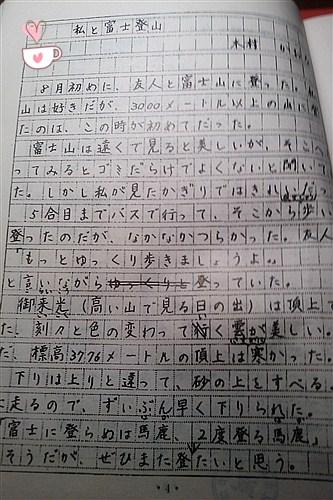 私と富士登山
木村
8月初めに、友人と富士山に登った。
山は好きだが、3000メートル以上の山に
たのは、この時が初めてだった。
富士山は遠くで見ると美しいが、そこへ
ってみるとゴミだらけでよくないと聞いて
た。しかし私が見たかぎりではきれいだ
5合目までバスで行って、そこから歩
登ったのだが、なかなかつらかった。友人
「もっとゆっくり歩きましょうよ。」
と言いながら登っていた。
御来光（高い山で見る日の出）は頂上
た。刻々と色の変わって行く雲が美しい。
だ、標高3776メートルの頂上は寒かった。
下りは上りと違って、砂の上をすべる
に走るので、ずいぶん早く下りられた。
「富士に登らぬは馬鹿、2度登る馬鹿」
そうだが、ぜひまた登たいと思う。
・4・